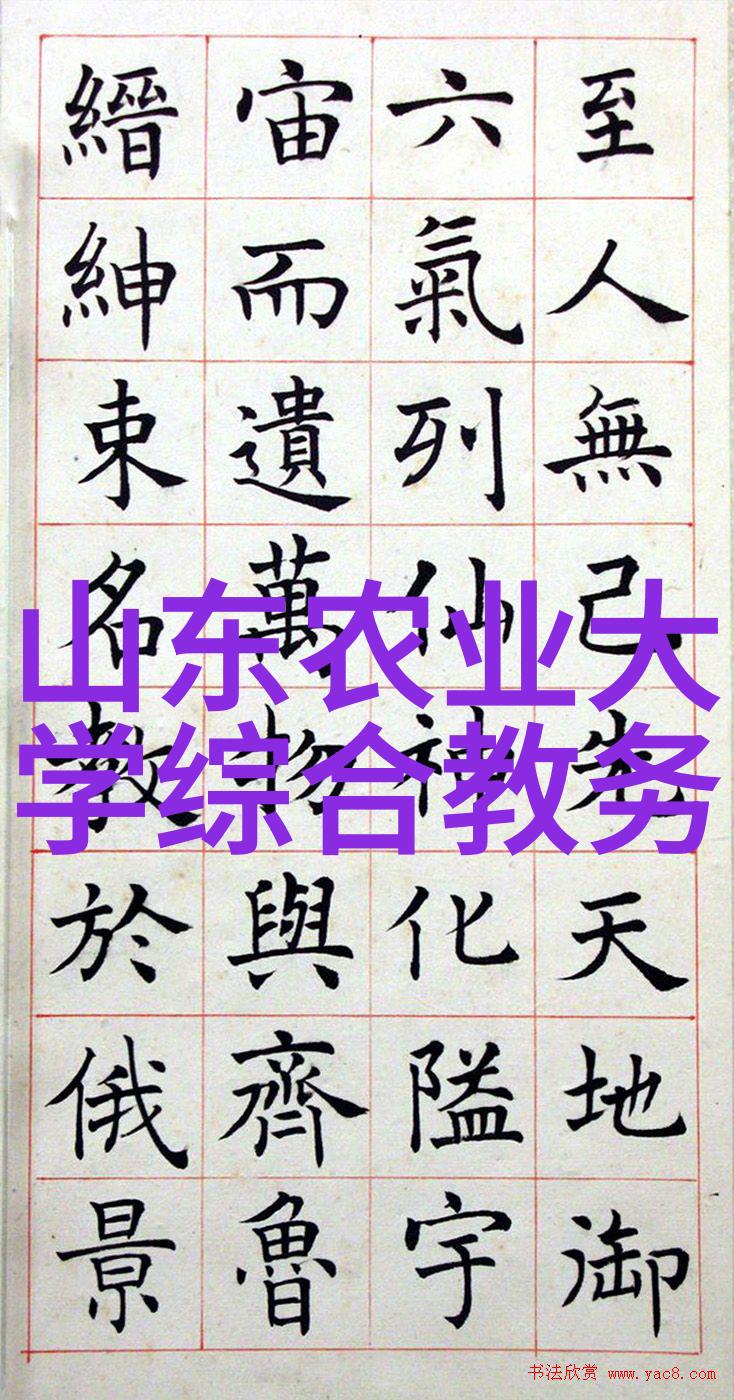 至人無己先天地御
六氣列仙神化隘宇
宙而遺萬物與齊魯
縉紳束名教於俄景
山东农业大
学综合教务
书法欣赏 www.yac8.com